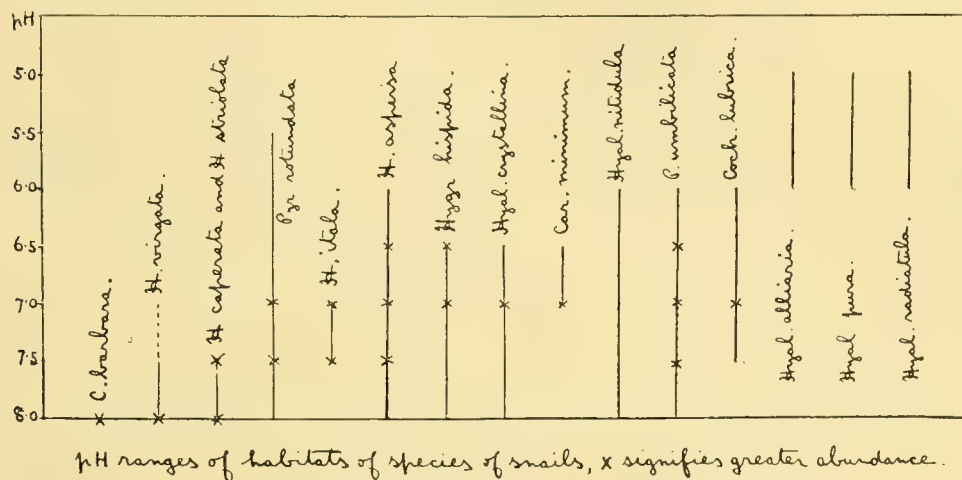 pH
5.0
5.5
6.0
6.5
7.0
7.5
8.0
C. barbara.
H. virgata.
H caperata and H striolata
Pyr rotundata
H. itala.
H. aspersa
Hygr hispida.
Hyal. crystellina.
Car. minimum.
Hyal. nitidula
P. umbilicata
Coch. lubrica.
Hyal. alliaria.
Hyal pura.
Hyal. radiatula.
pH ranges of habitats of species of snails, x signifies greater abundance.